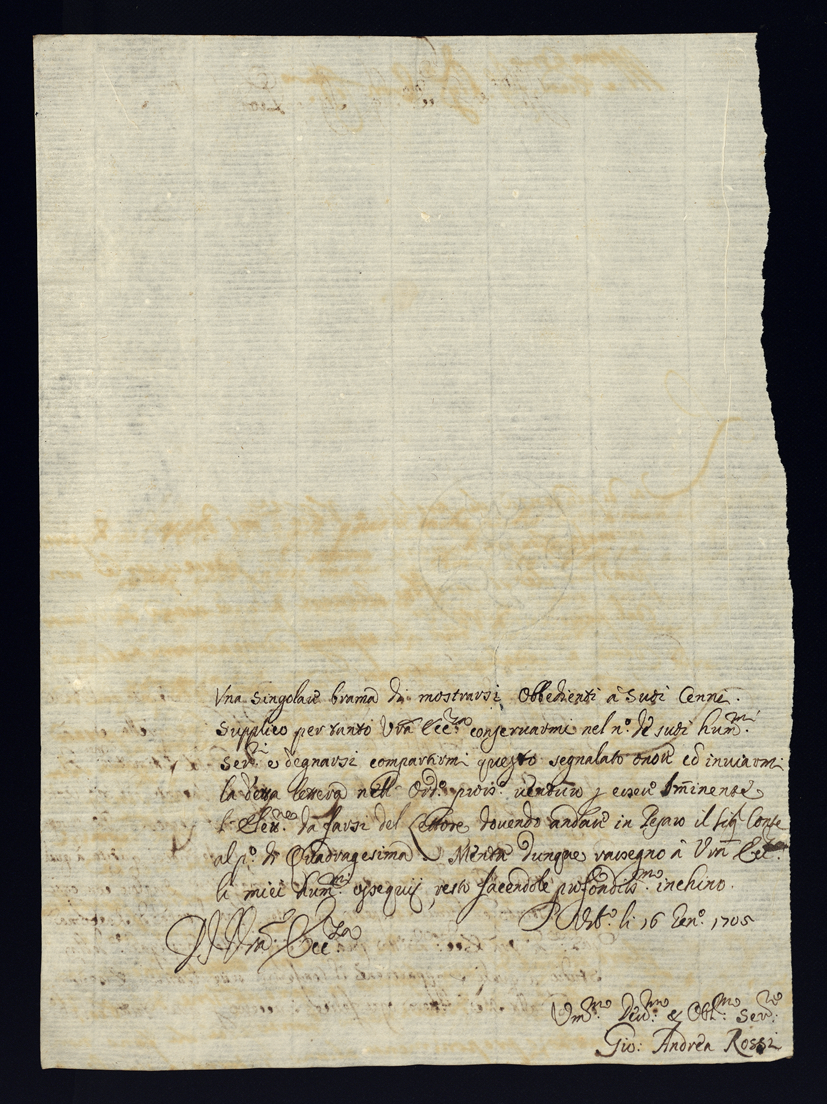 Una singolare brama di mostrarsi Obbedienti à Suoi Cenni.
Supplico per tanto Vrā Ecc.za conservarmi nel n.o de suoi hum.mi
Ser.i e degnarsi compartirmi questo segnalato onore ed inviarmi
la detta lettera nell' Ord.o pross.o venturo p esser Imminente
l' da farsi del Lettore dovendo andare in Pesaro il Sig. Conte
al p.o di Quadragesima Mentre dunque rassegno à Vrā Ecc.
li miei hum.mi ossequij, resto facendole profondiss.mo inchino.
li 16 Gen.o 1705
Di Vrā Ecc.za
Um.mo Dev.mo & Obl.mo Ser.re
Gio: Andrea Rossi